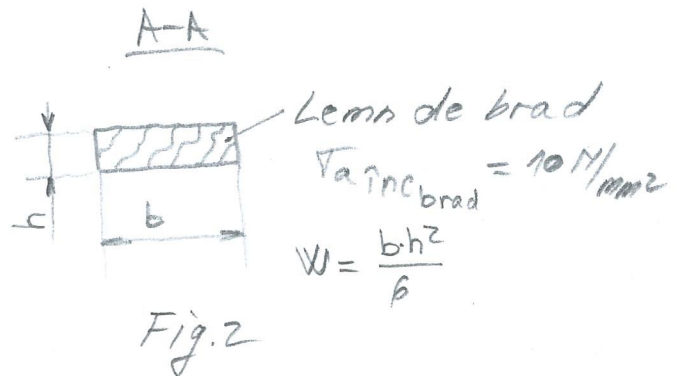 A-A
Lemn de brad
σa înc brad = 10 N/mm²
h
b
W = b·h²/6
Fig.2